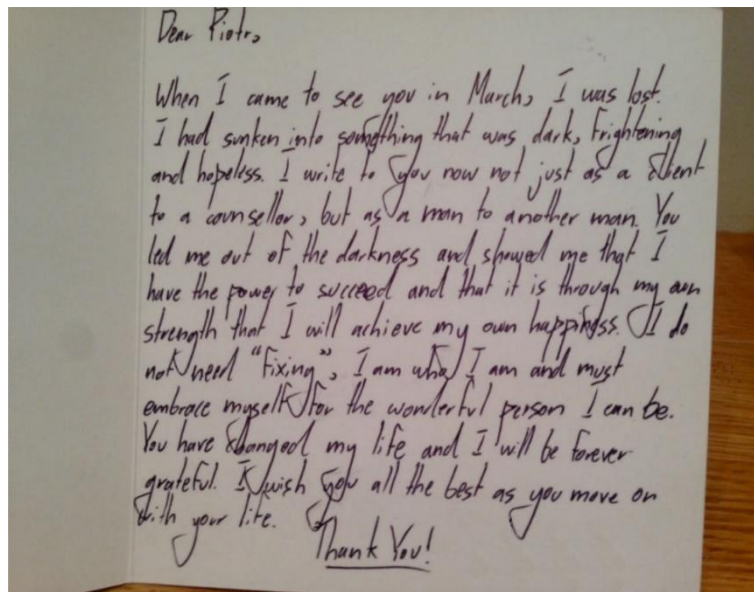 Dear Piotr,
When I came to see you in March, I was lost.
I had sunken into something that was dark, frightening
and hopeless. I write to you now not just as a client
to a counsellor, but as a man to another man. You
led me out of the darkness and showed me that I
have the power to succeed and that it is through my own
strength that I will achieve my own happiness. I do
not need "fixing", I am who I am and must
embrace myself for the wonderful person I can be.
You have changed my life and I will be forever
grateful. I wish you all the best as you move on
with your life.
Thank You!